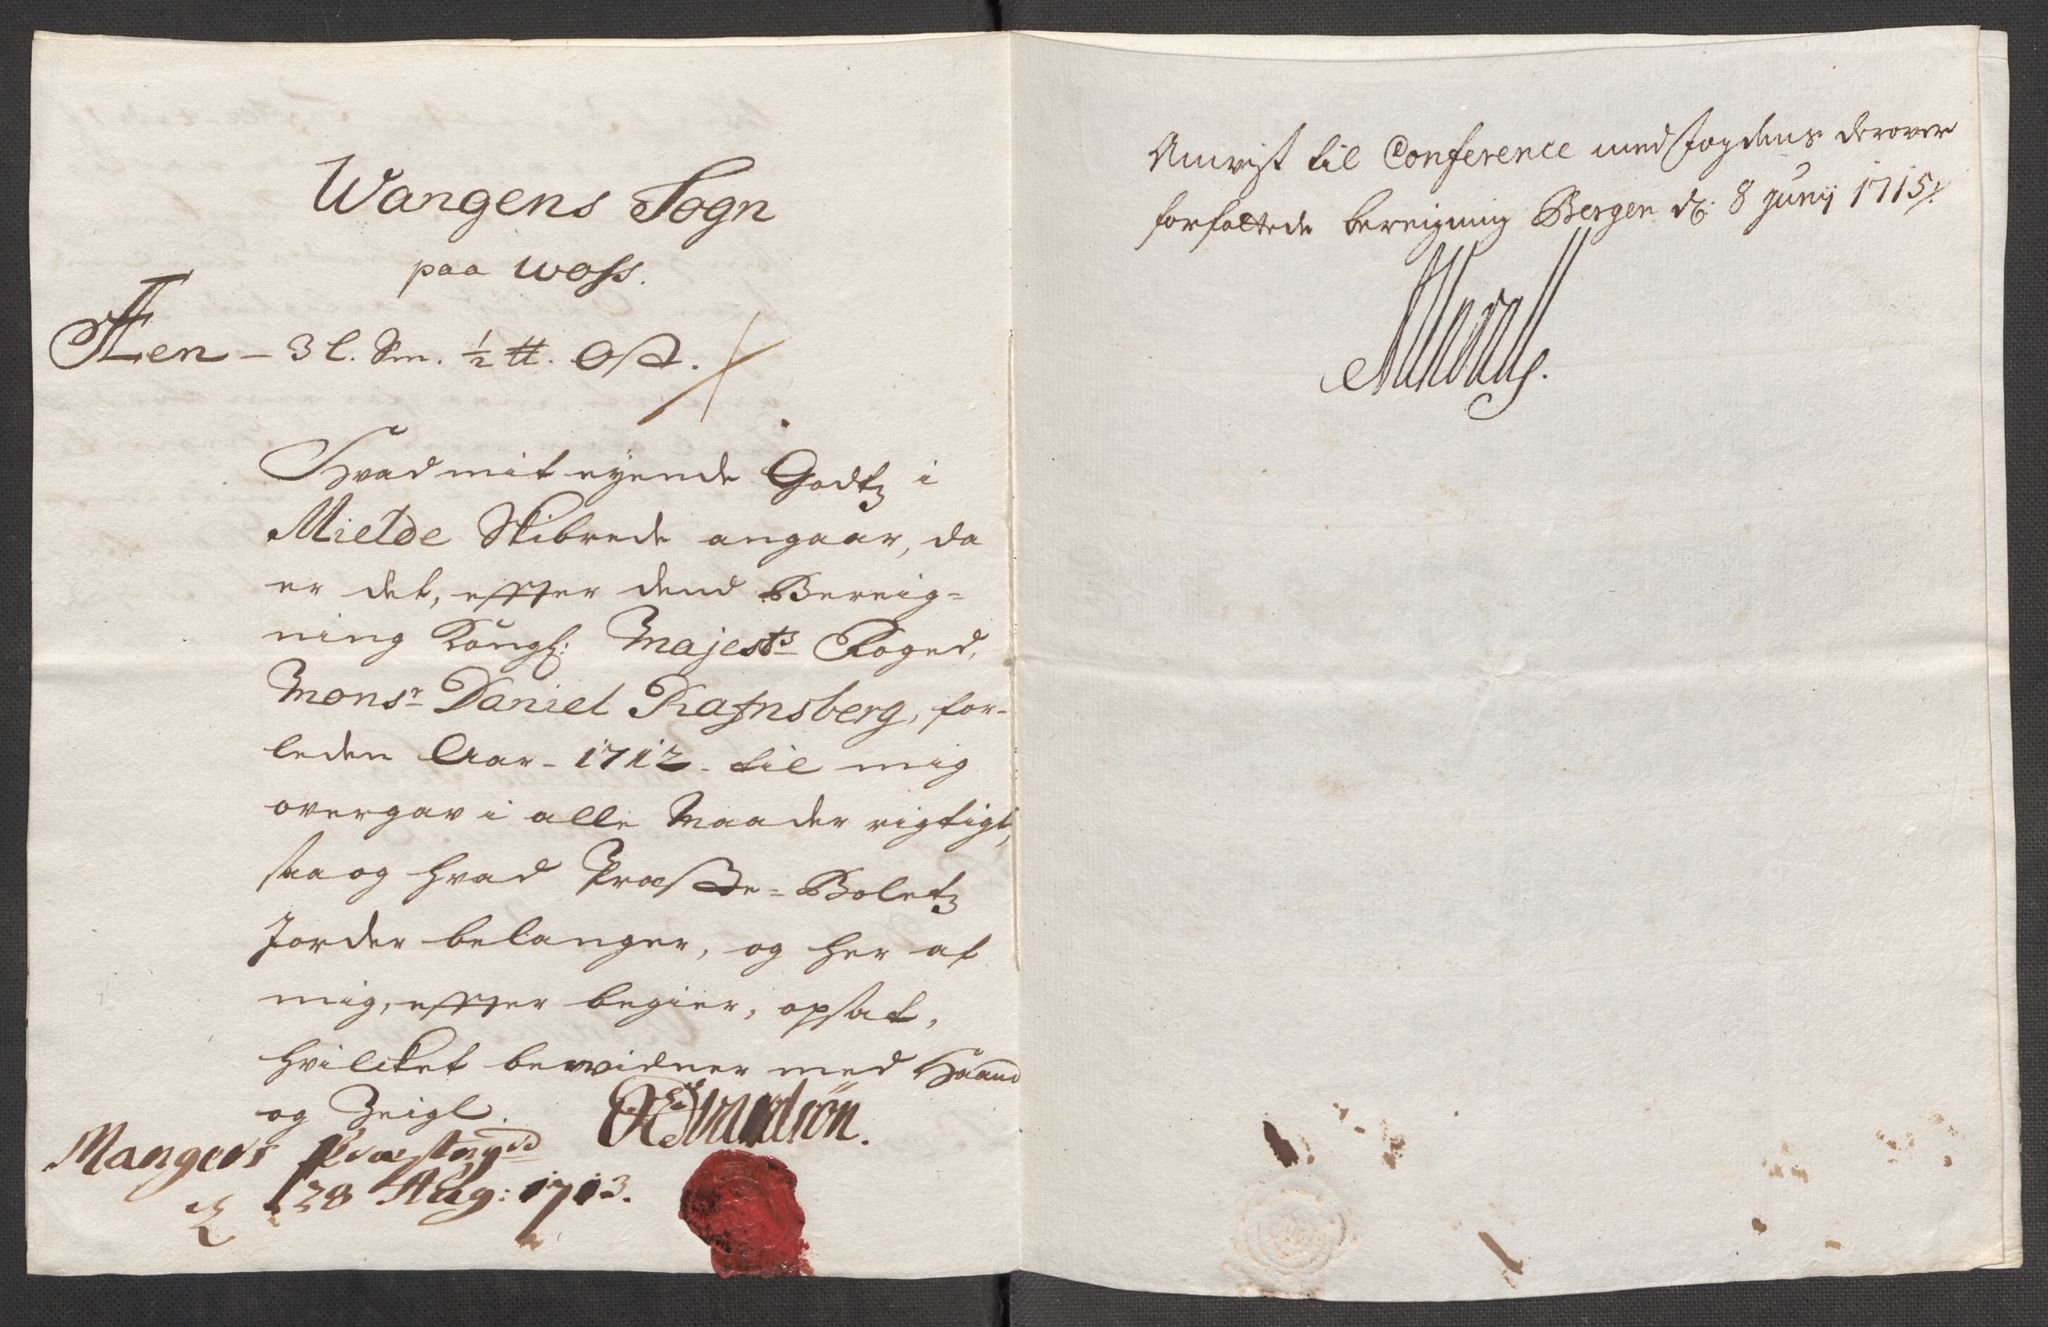 Wangens Sogn
paa Woss.
Fen – 3 l. Sm. ½ tt. Ost.
Hvad mit eyende Godtz i
Mielde Skibrede angaar, da
er det, effter dend Bereig=
ning Kongl: Majests Foged,
Monsr Daniel Rafnsberg, for-
leden Aar – 1712 – til mig
overgav i alle Maader rigtigt,
saa og hvad Præste-Boletz
Jorder belanger, og her af
mig, effter begier, opsat,
hvilcket bewidner med Haand
og Zeigl.
Mangers Præstegrd
d 28 Aug: 1713.
Anvist til Conference med fogdens derover
forfattede bereigning Bergen d: 8 Junij 1715